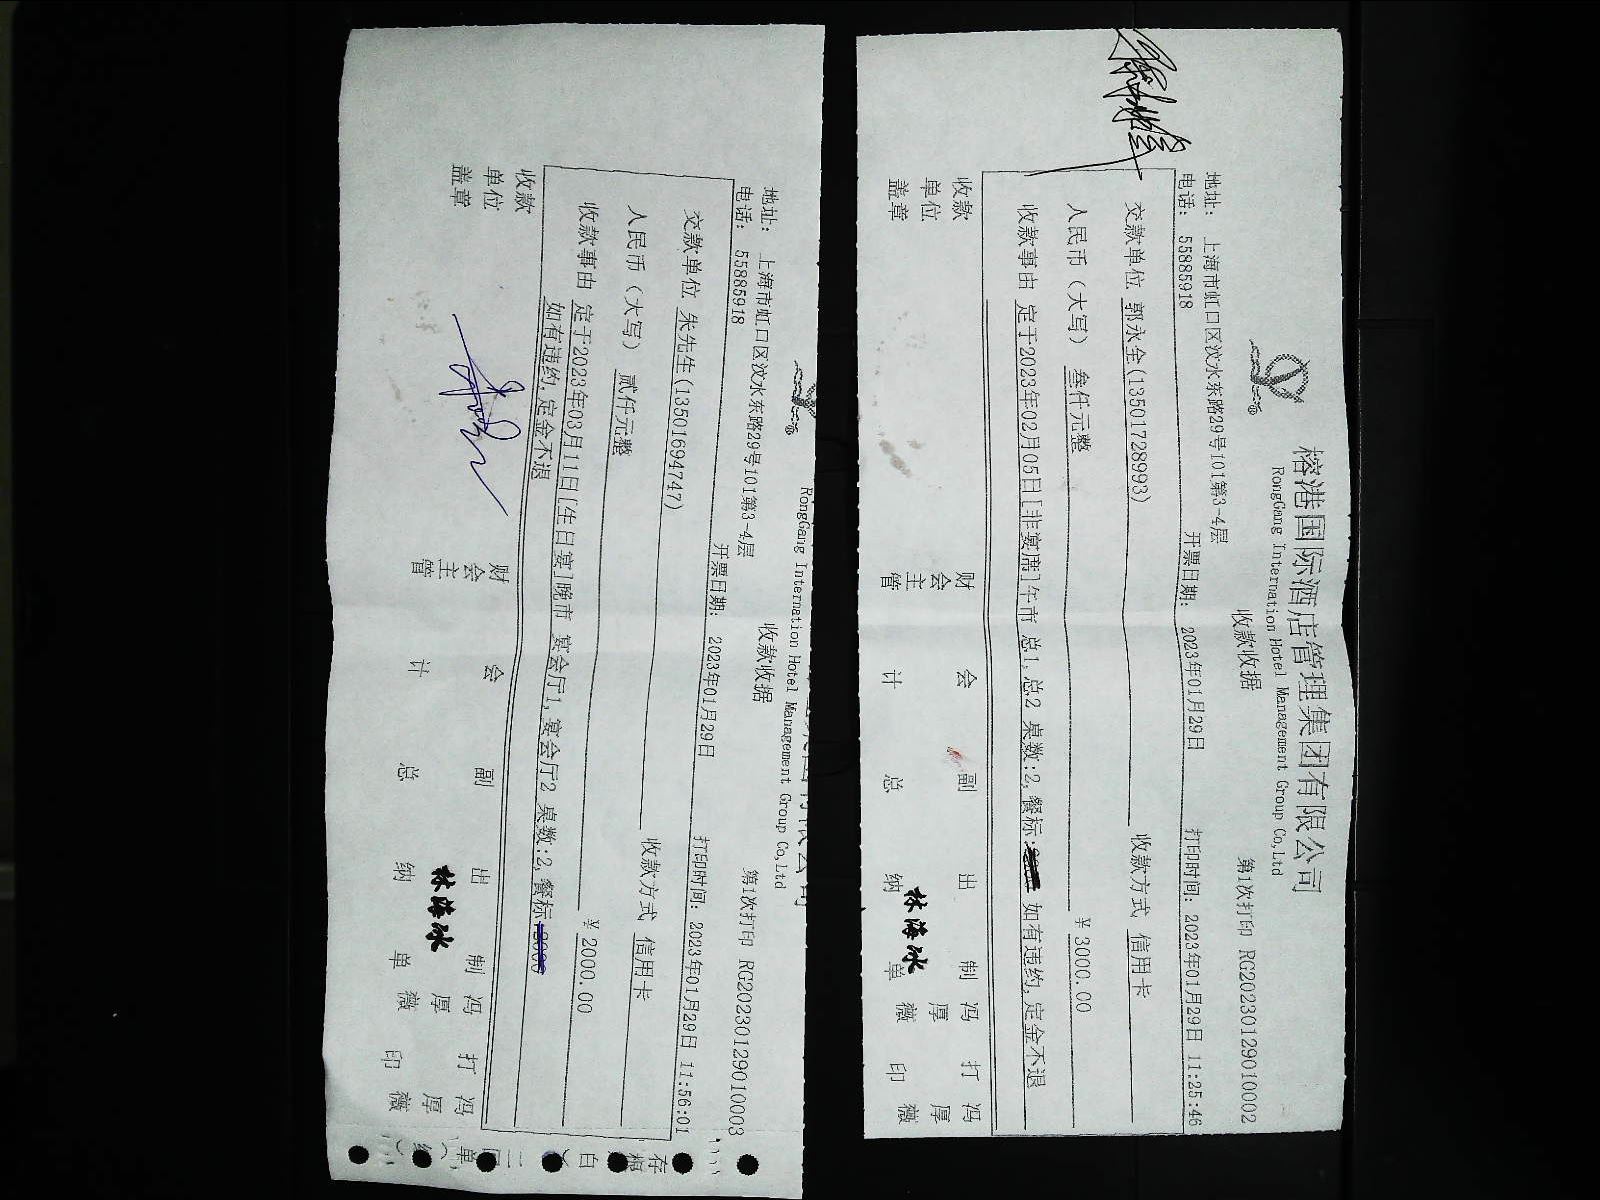 榕港国际酒店管理集团有限公司
RongGang International Hotel Management Group Co,Ltd
收款收据
第1次打印 RG20230129010002
地址： 上海市虹口区汶水东路29号101第3-4层
电话： 55885918 开票日期： 2023年01月29日 打印时间： 2023年01月29日 11:25:46
交款单位 郭永全(13501728993) 收款方式 信用卡
人民币（大写） 叁仟元整 ￥ 3000.00
收款事由 定于2023年02月05日[非宴席]午市 总1,总2 桌数:2,餐标: 如有违约,定金不退
收款单位盖章 财会主管 会计 副总 出纳 林海冰 制单 冯厚薇 打印 冯厚薇
RongGang International Hotel Management Group Co,Ltd
收款收据
第1次打印 RG20230129010003
地址： 上海市虹口区汶水东路29号101第3-4层
电话： 55885918 开票日期： 2023年01月29日 打印时间： 2023年01月29日 11:56:01
交款单位 朱先生(13501694747) 收款方式 信用卡
人民币（大写） 贰仟元整 ￥ 2000.00
收款事由 定于2023年03月11日[生日宴]晚市 宴会厅1,宴会厅2 桌数:2,餐标
如有违约,定金不退
收款单位盖章 财会主管 会计 副总 出纳 林海冰 制单 冯厚薇 打印 冯厚薇